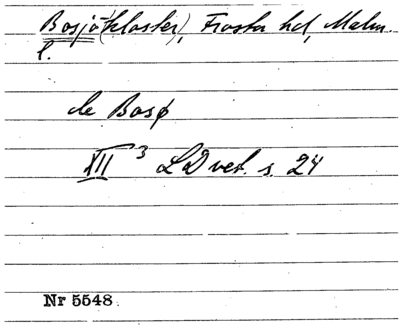 Bosjö(kloster), Frosta hd, Malm.
l.
de Bosø
XII 3 LD vet. s. 24
Nr 5548